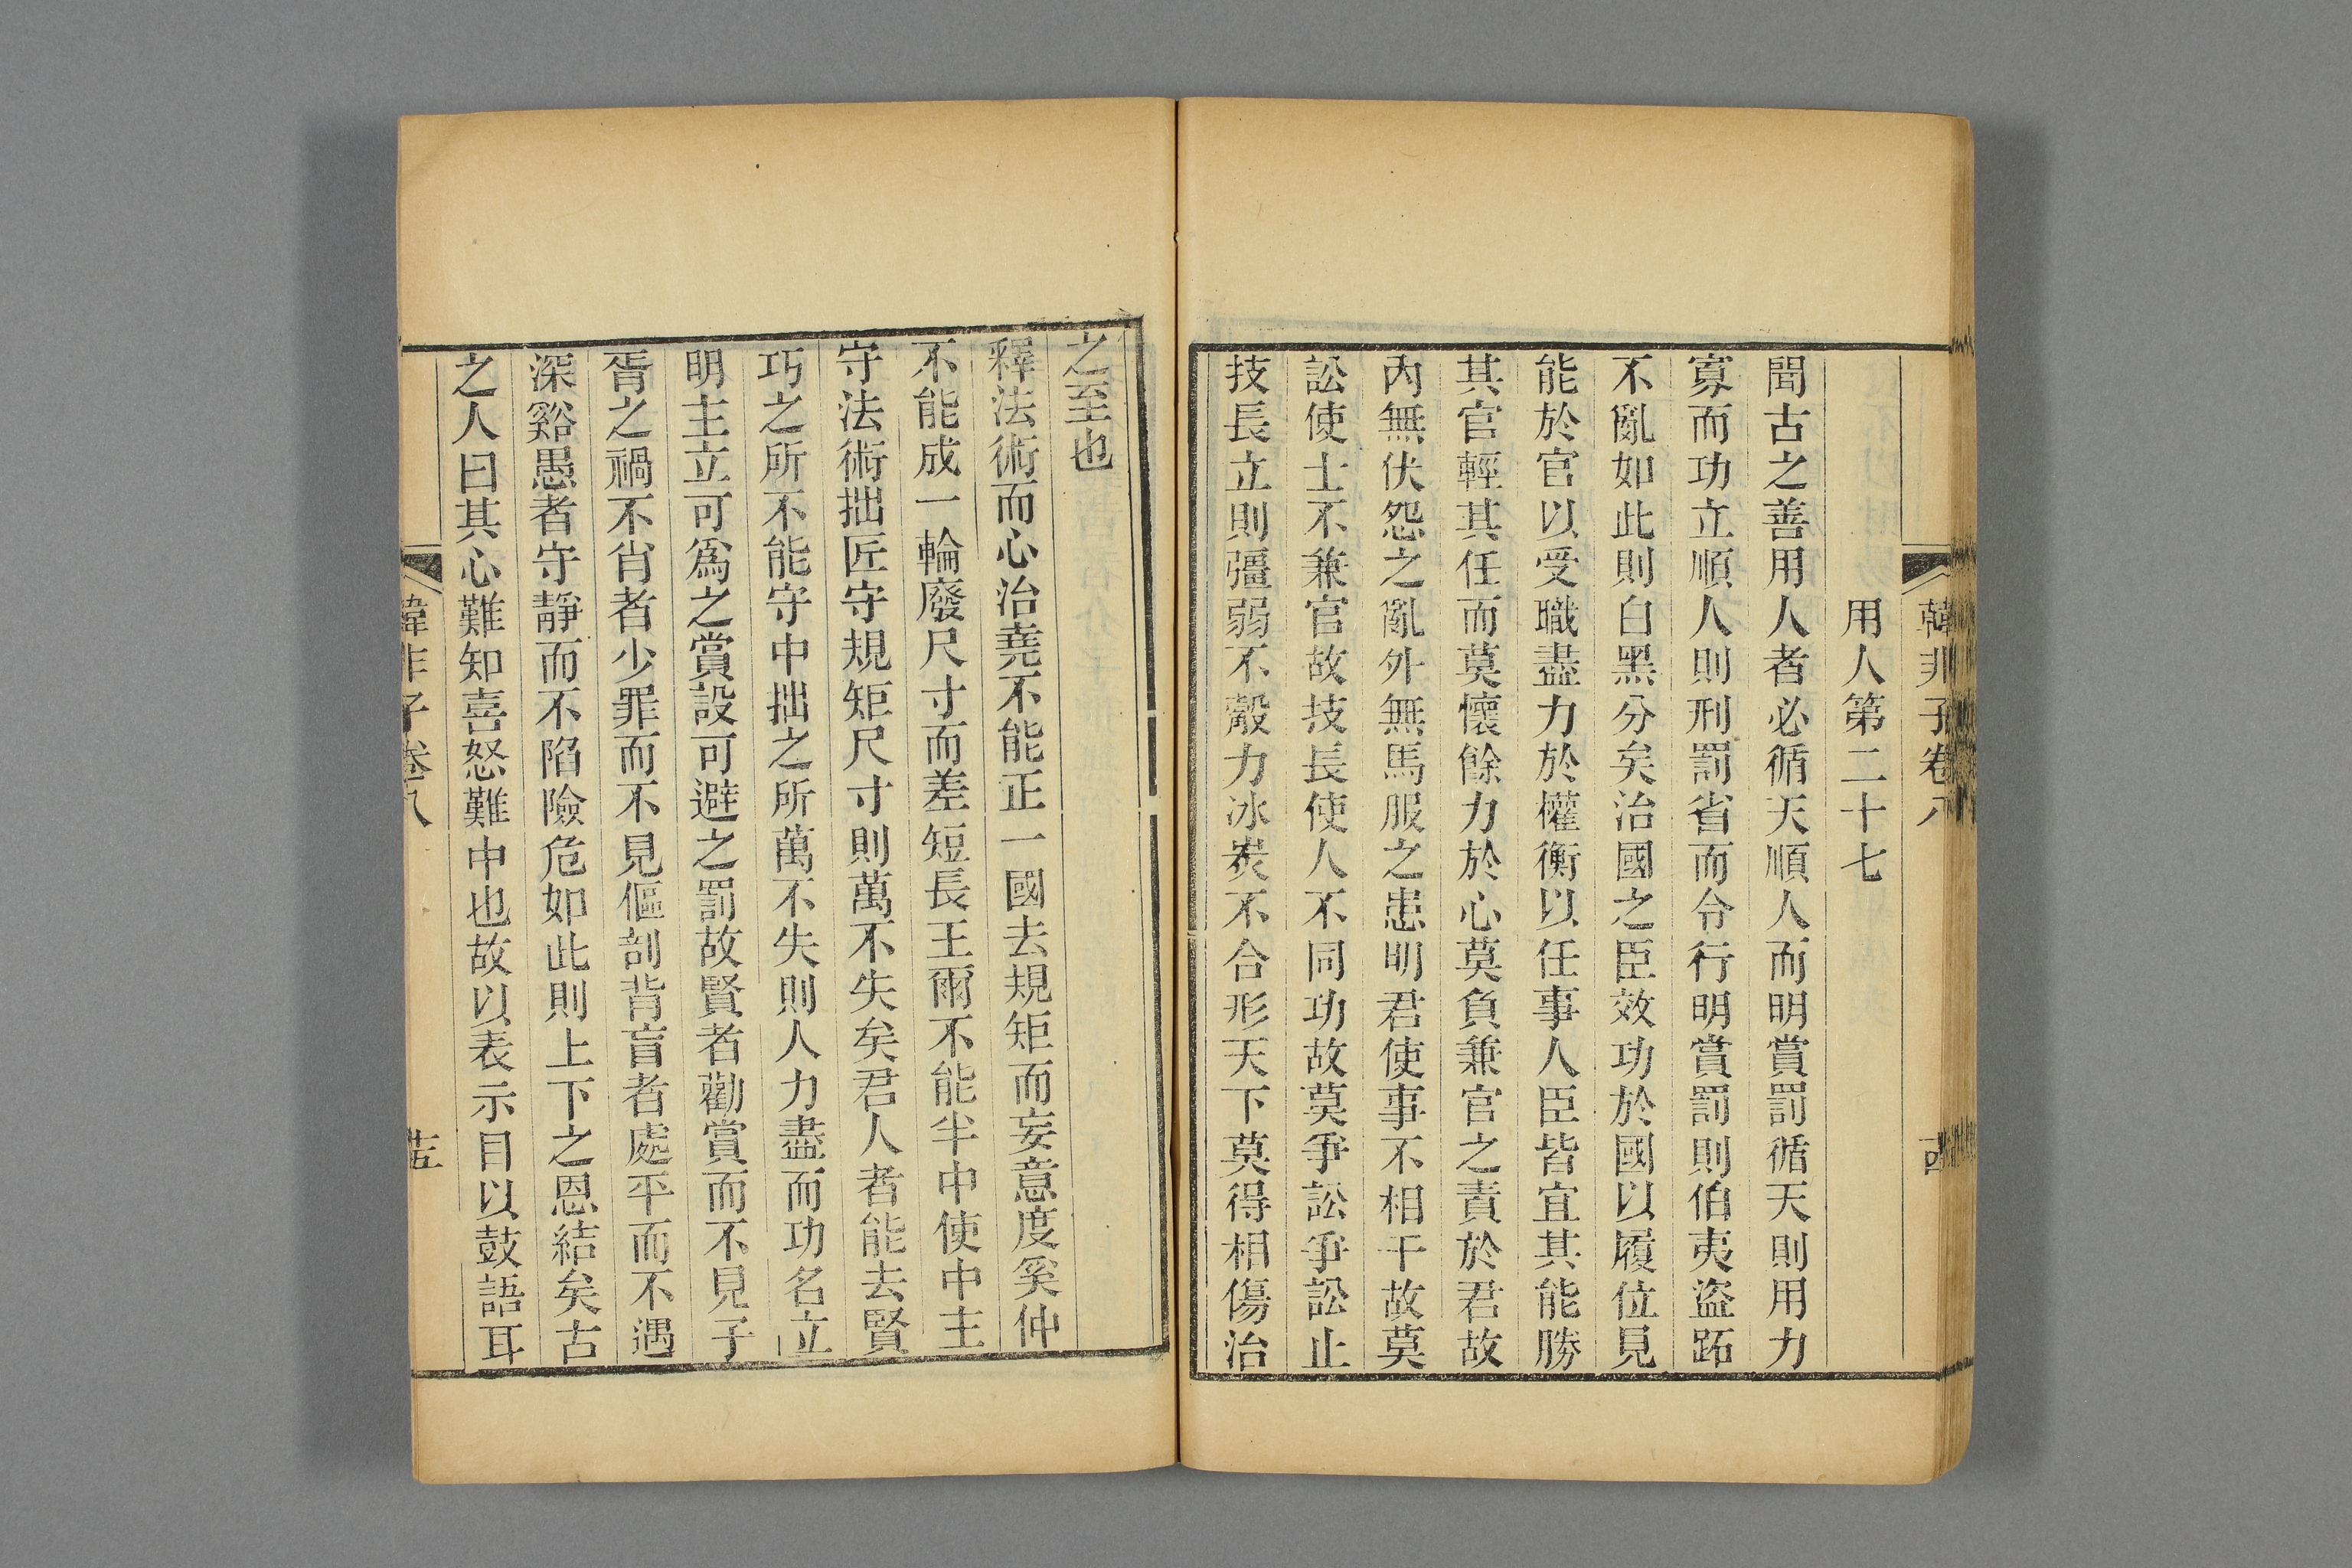 韓非子卷八
用人第二十七
聞古之善用人者必循天順人而明賞罰循天則用力
寡而功立順人則刑罰省而令行明賞罰則伯夷盜跖
不亂如此則白黑分矣治國之臣效功於國以履位見
能於官以受職盡力於權衡以任事人臣皆宜其能勝
其官輕其任而莫懷餘力於心莫負兼官之責於君故
內無伏怨之亂外無馬服之患明君使事不相干故莫
訟使士不兼官故技長使人不同功故莫爭訟爭訟止
技長立則彊弱不觳力冰炭不合形天下莫得相傷治
之至也
釋法術而心治堯不能正一國去規矩而妄意度奚仲
不能成一輪廢尺寸而差短長王爾不能半中使中主
守法術拙匠守規矩尺寸則萬不失矣君人者能去賢
巧之所不能守中拙之所萬不失則人力盡而功名立
明主立可爲之賞設可避之罰故賢者勸賞而不見子
胥之禍不肖者少罪而不見傴剖背盲者處平而不遇
深谿愚者守靜而不陷險危如此則上下之恩結矣古
之人曰其心難知喜怒難中也故以表示目以鼓語耳
韓非子卷八